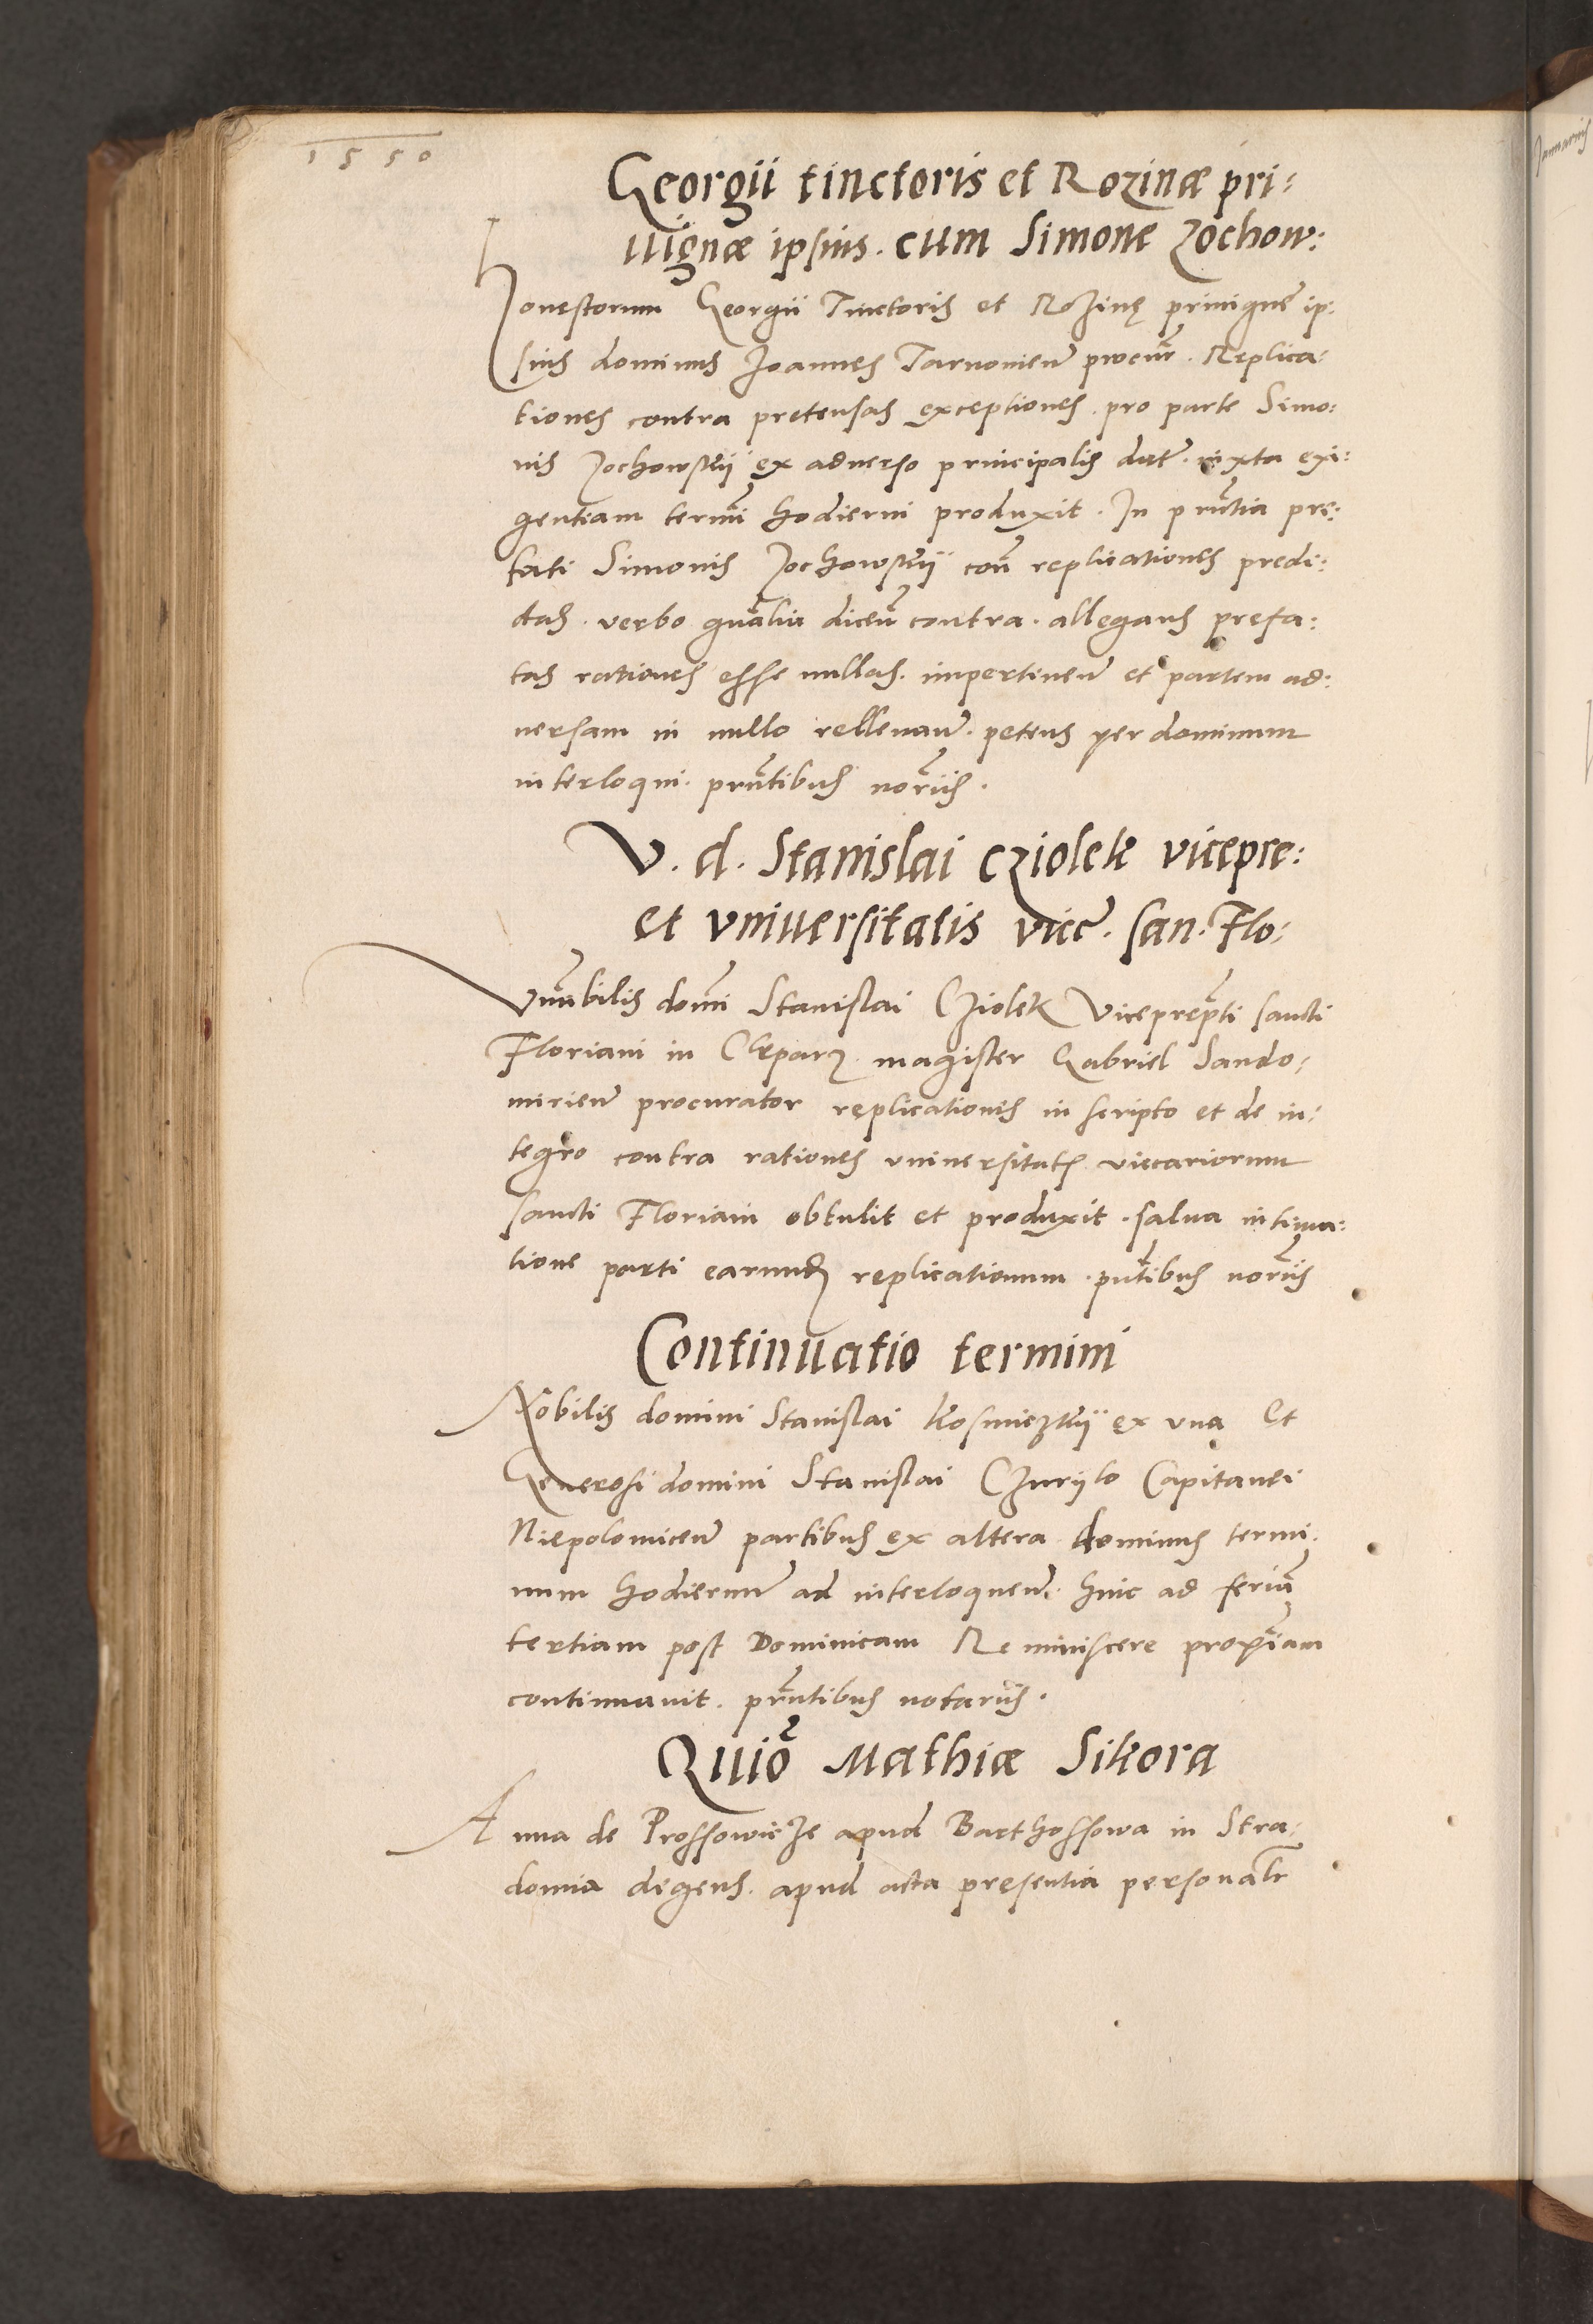 1550
Georgii tinctoris et Rozinæ pri:
uignæ ipsius. cum Simone Zochow:
Honestorum Georgii Tinctoris et Rozinę priuignę ip:
sius dominus Joannes Tarnouien̄ procur̄. Replica:
tiones contra pretensas exceptiones pro parte Simo:
nis Zochowskij ex aduerso principalis dat̄. iuxta exi:
gentiam term̄i hodierni produxit. In pr̄ntia pre:
fati Simonis Zochowskij con̄ replicationes predi:
ctas. verbo gn̄alia dicen̄ contra. allegans prefa:
tas rationes esse nullas. impertinen̄ et partem ad:
uersam in nullo rellevan̄. petens per dominum
interloqui. prn̄tibus nor̄iis.
V. d. Stanislai Cziolek vicepre:
et vniuersitatis vicc̄. san. Flo:
Vn̄abilis dom̄i Stanislai Cziolek viceprep̄ti sancti
Floriani in Cleparz. magister Gabriel Sando:
mirien̄ procurator replicationis in scripto et de in:
tegro contra rationes vniuersitatis viccariorum
sancti Floriani obtulit et produxit. salua intima:
tione parti earundem replicationum. pn̄tibus nor̄iis
Continuatio termini
Nobilis domini Stanislai Kosmiczkij ex vna Et
Generosi domini Stanislai Czurijlo Capitanei
Niepolomicen̄ partibus ex altera dominus termi:
num hodiernum̄ ad interloquen̄. hinc ad feriā
tertiam post Dominicam Reminiscere proxīam
continuauit. prn̄tibus notariis.
Quio᷑ Mathiæ Sikora
Anna de Prossowicze apud Barthossowa in Stra:
domia degens. apud acta presentia personalr̄
Januariis